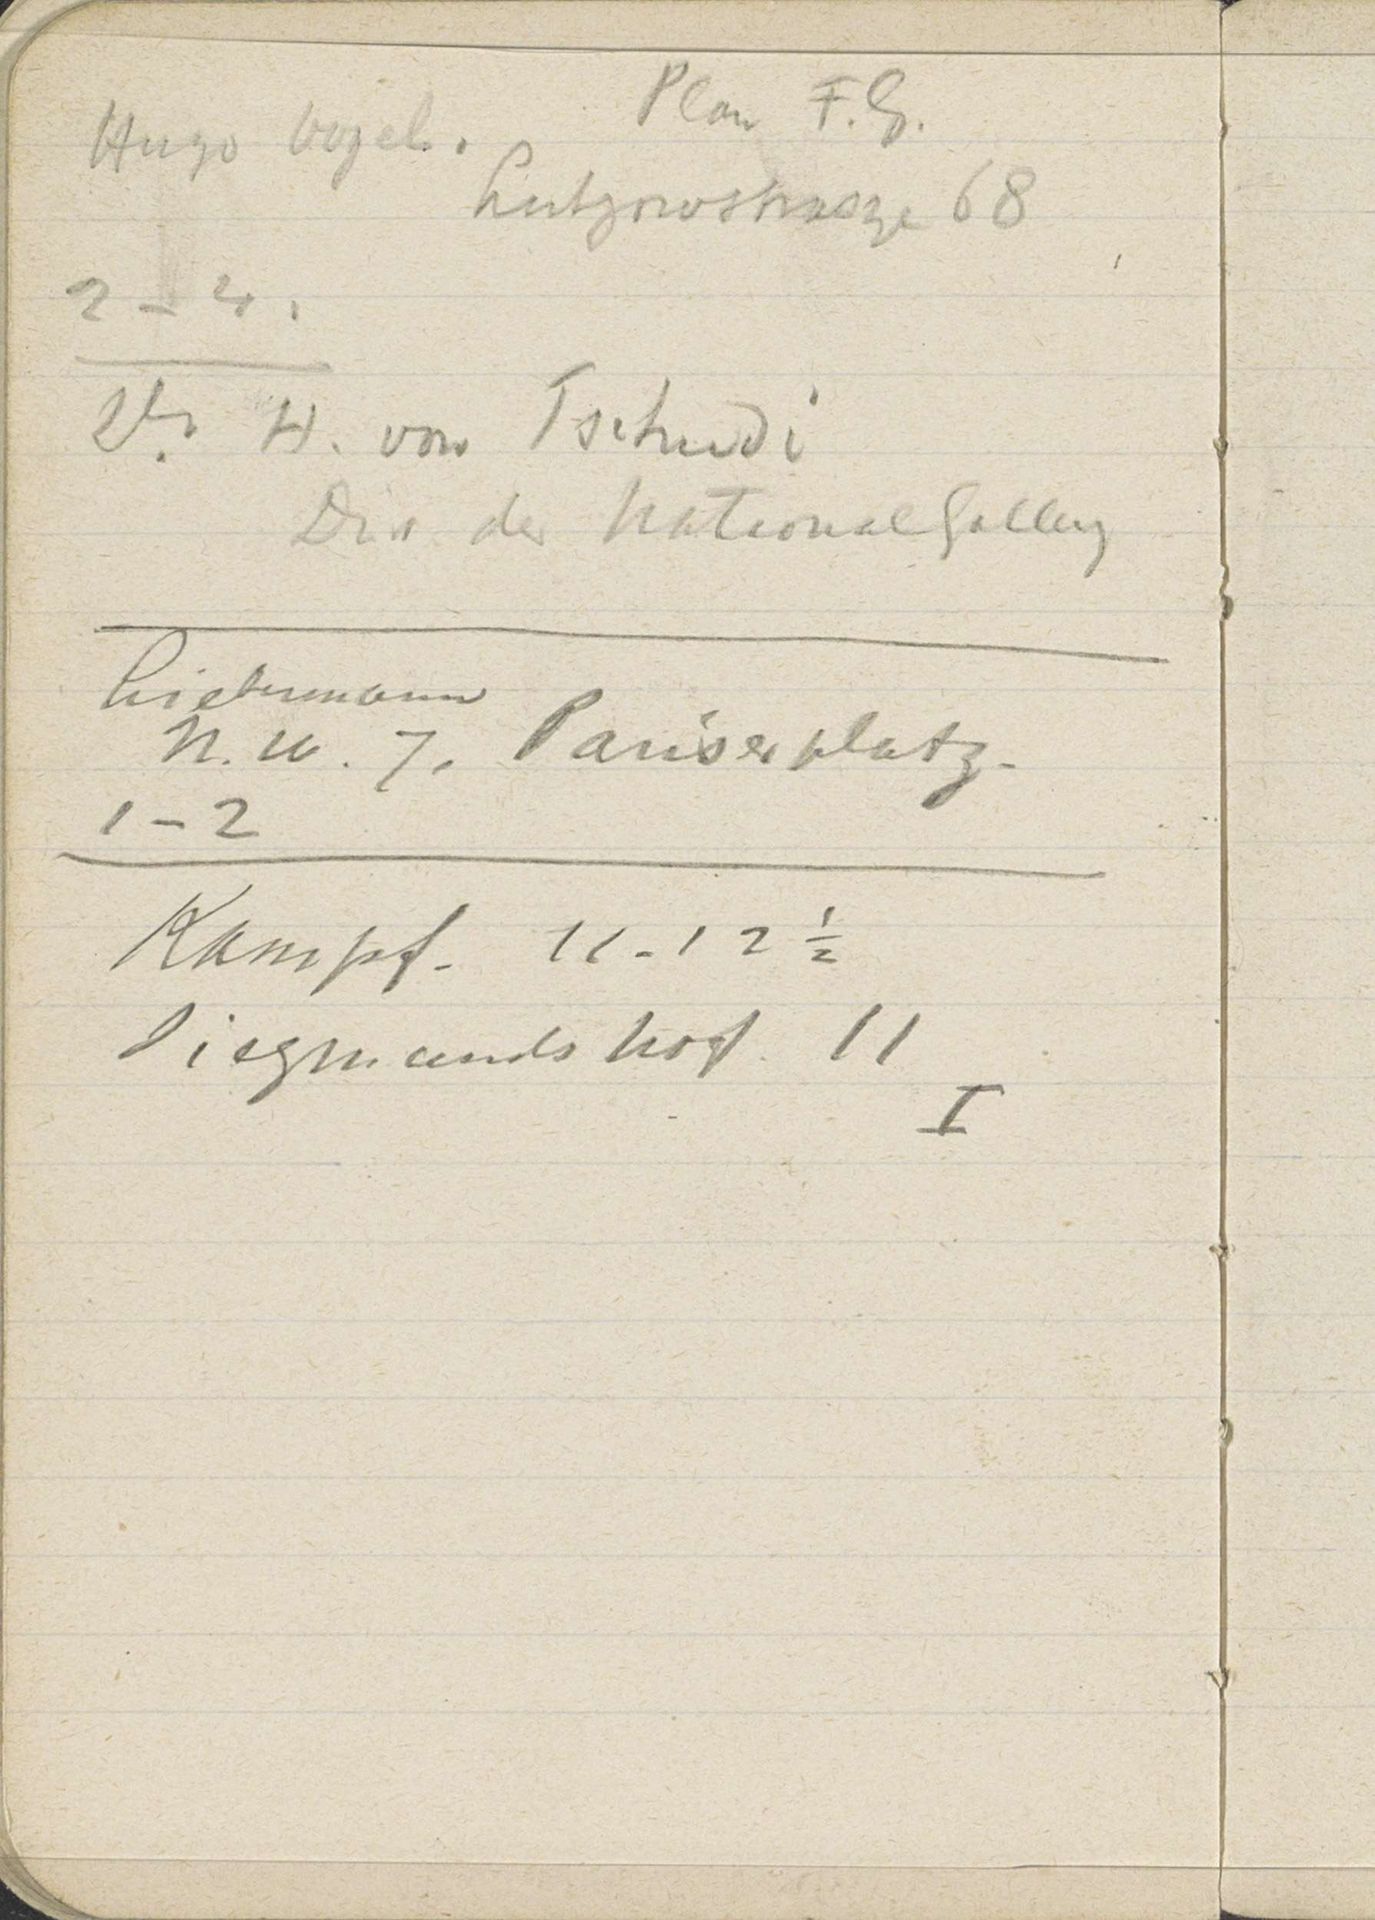 Plan F.G.
Hugo Vogel.
Lutzowstrasze 68
2 - 4.
Dr. H. von Tschudi
Dir der National Gallery
Liebermann
N. W. 7. Pariserplatz.
1 - 2
Kampf. 11 - 12 ½
Siegmundshof 11
I